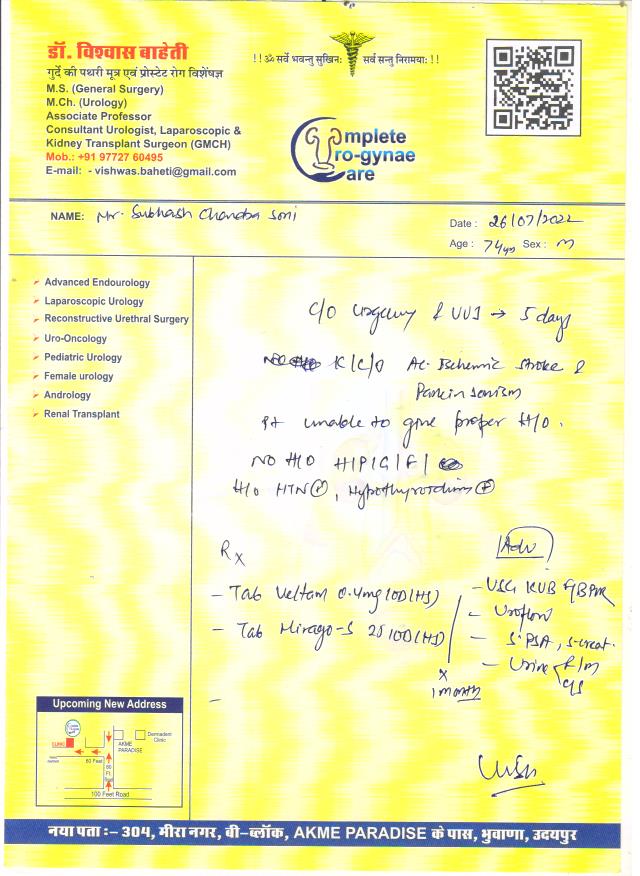 डॉ. विश्वास बाहेती
गुर्दे की पथरी मूत्र एवं प्रोस्टेट रोग विशेषज्ञ
M.S. (General Surgery)
M.Ch. (Urology)
Associate Professor
Consultant Urologist, Laparoscopic &
Kidney Transplant Surgeon (GMCH)
Mob.: +91 97727 60495
E-mail: - vishwas.baheti@gmail.com
!! ॐ सर्वे भवन्तु सुखिनः सर्व सन्तु निरामयाः !!
Complete
Uro-gynae
Care
NAME: Mr. Subhash Chandra Soni
Date : 26/07/2022
Age : 74yrs Sex : M
Advanced Endourology
Laparoscopic Urology
Reconstructive Urethral Surgery
Uro-Oncology
Pediatric Urology
Female urology
Andrology
Renal Transplant
C/O Urgency & UUI → 5 days
K/C/O Ac. Ischemic Stroke &
Parkinsonism
Pt unable to give proper H/O.
NO H/O H/P/G/F/
H/o HTN (+), Hypothyroidism (+)
Rx
- Tab Veltam 0.4mg 1OD (HS)
- Tab Mirago-S 25 1OD (HS)
x
1 month
Adv
- USG KUB & PVR
- Uroflow
- S.PSA, S.creat.
- Urine R/M
C/S
Upcoming New Address
CLINIC
AKME
PARADISE
Dermadent
Clinic
60 Feet
80
Ft.
Road
100 Feet Road
नया पता :– 304, मीरा नगर, बी–ब्लॉक, AKME PARADISE के पास, भुवाणा, उदयपुर